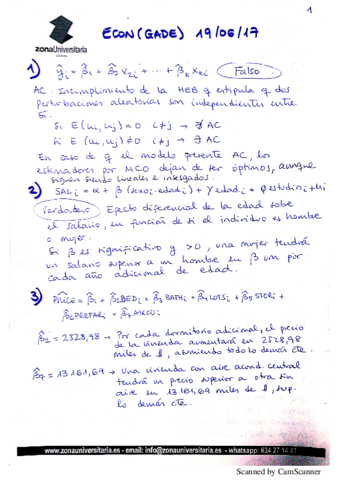 1
ECON (GADE) 19/06/17
zonaUniversitaria
1) ŷi = β̂1 + β̂2 X2i + ... + β̂k Xki Falso
AC: Incumplimiento de la HEB q estipula q dos
Perturbaciones aleatorias son independientes entre
sí.
Si E(ui, uj) = 0 i≠j → ∄ AC
Si E(ui, uj) ≠ 0 i≠j → ∃ AC
En caso de q el modelo presente AC, los
estimadores por MCO dejan de ser óptimos, aunque
siguen siendo lineales e insesgados.
2) SALi = α + β (sexoi·edadi) + γ edadi + φ estudioi + ui
Verdadero Efecto diferencial de la edad sobre
el salario, en función de si el individuo es hombre
o mujer.
Si β es significativo y >0, una mujer tendrá
un salario superior a un hombre en β um por
cada año adicional de edad.
3) Pricei = β̂1 + β̂2 BEDi + β̂3 BATHi + β̂4 LOTSi + β̂5 STORi +
β̂2 = 2528,98 → Por cada dormitorio adicional, el precio
de la vivienda aumentará en 2528,98
miles de, asumiendo todo lo demás cte.
β̂7 = 13161,69 → Una vivienda con aire acond. central
tendrá un precio superior a otra sin
aire en 13.161,69 miles de, sup.
lo demás cte.
www.zonauniversitaria.es - email: info@zonauniversitaria.es - whatsapp: 634 27 14
Scanned by CamScanner